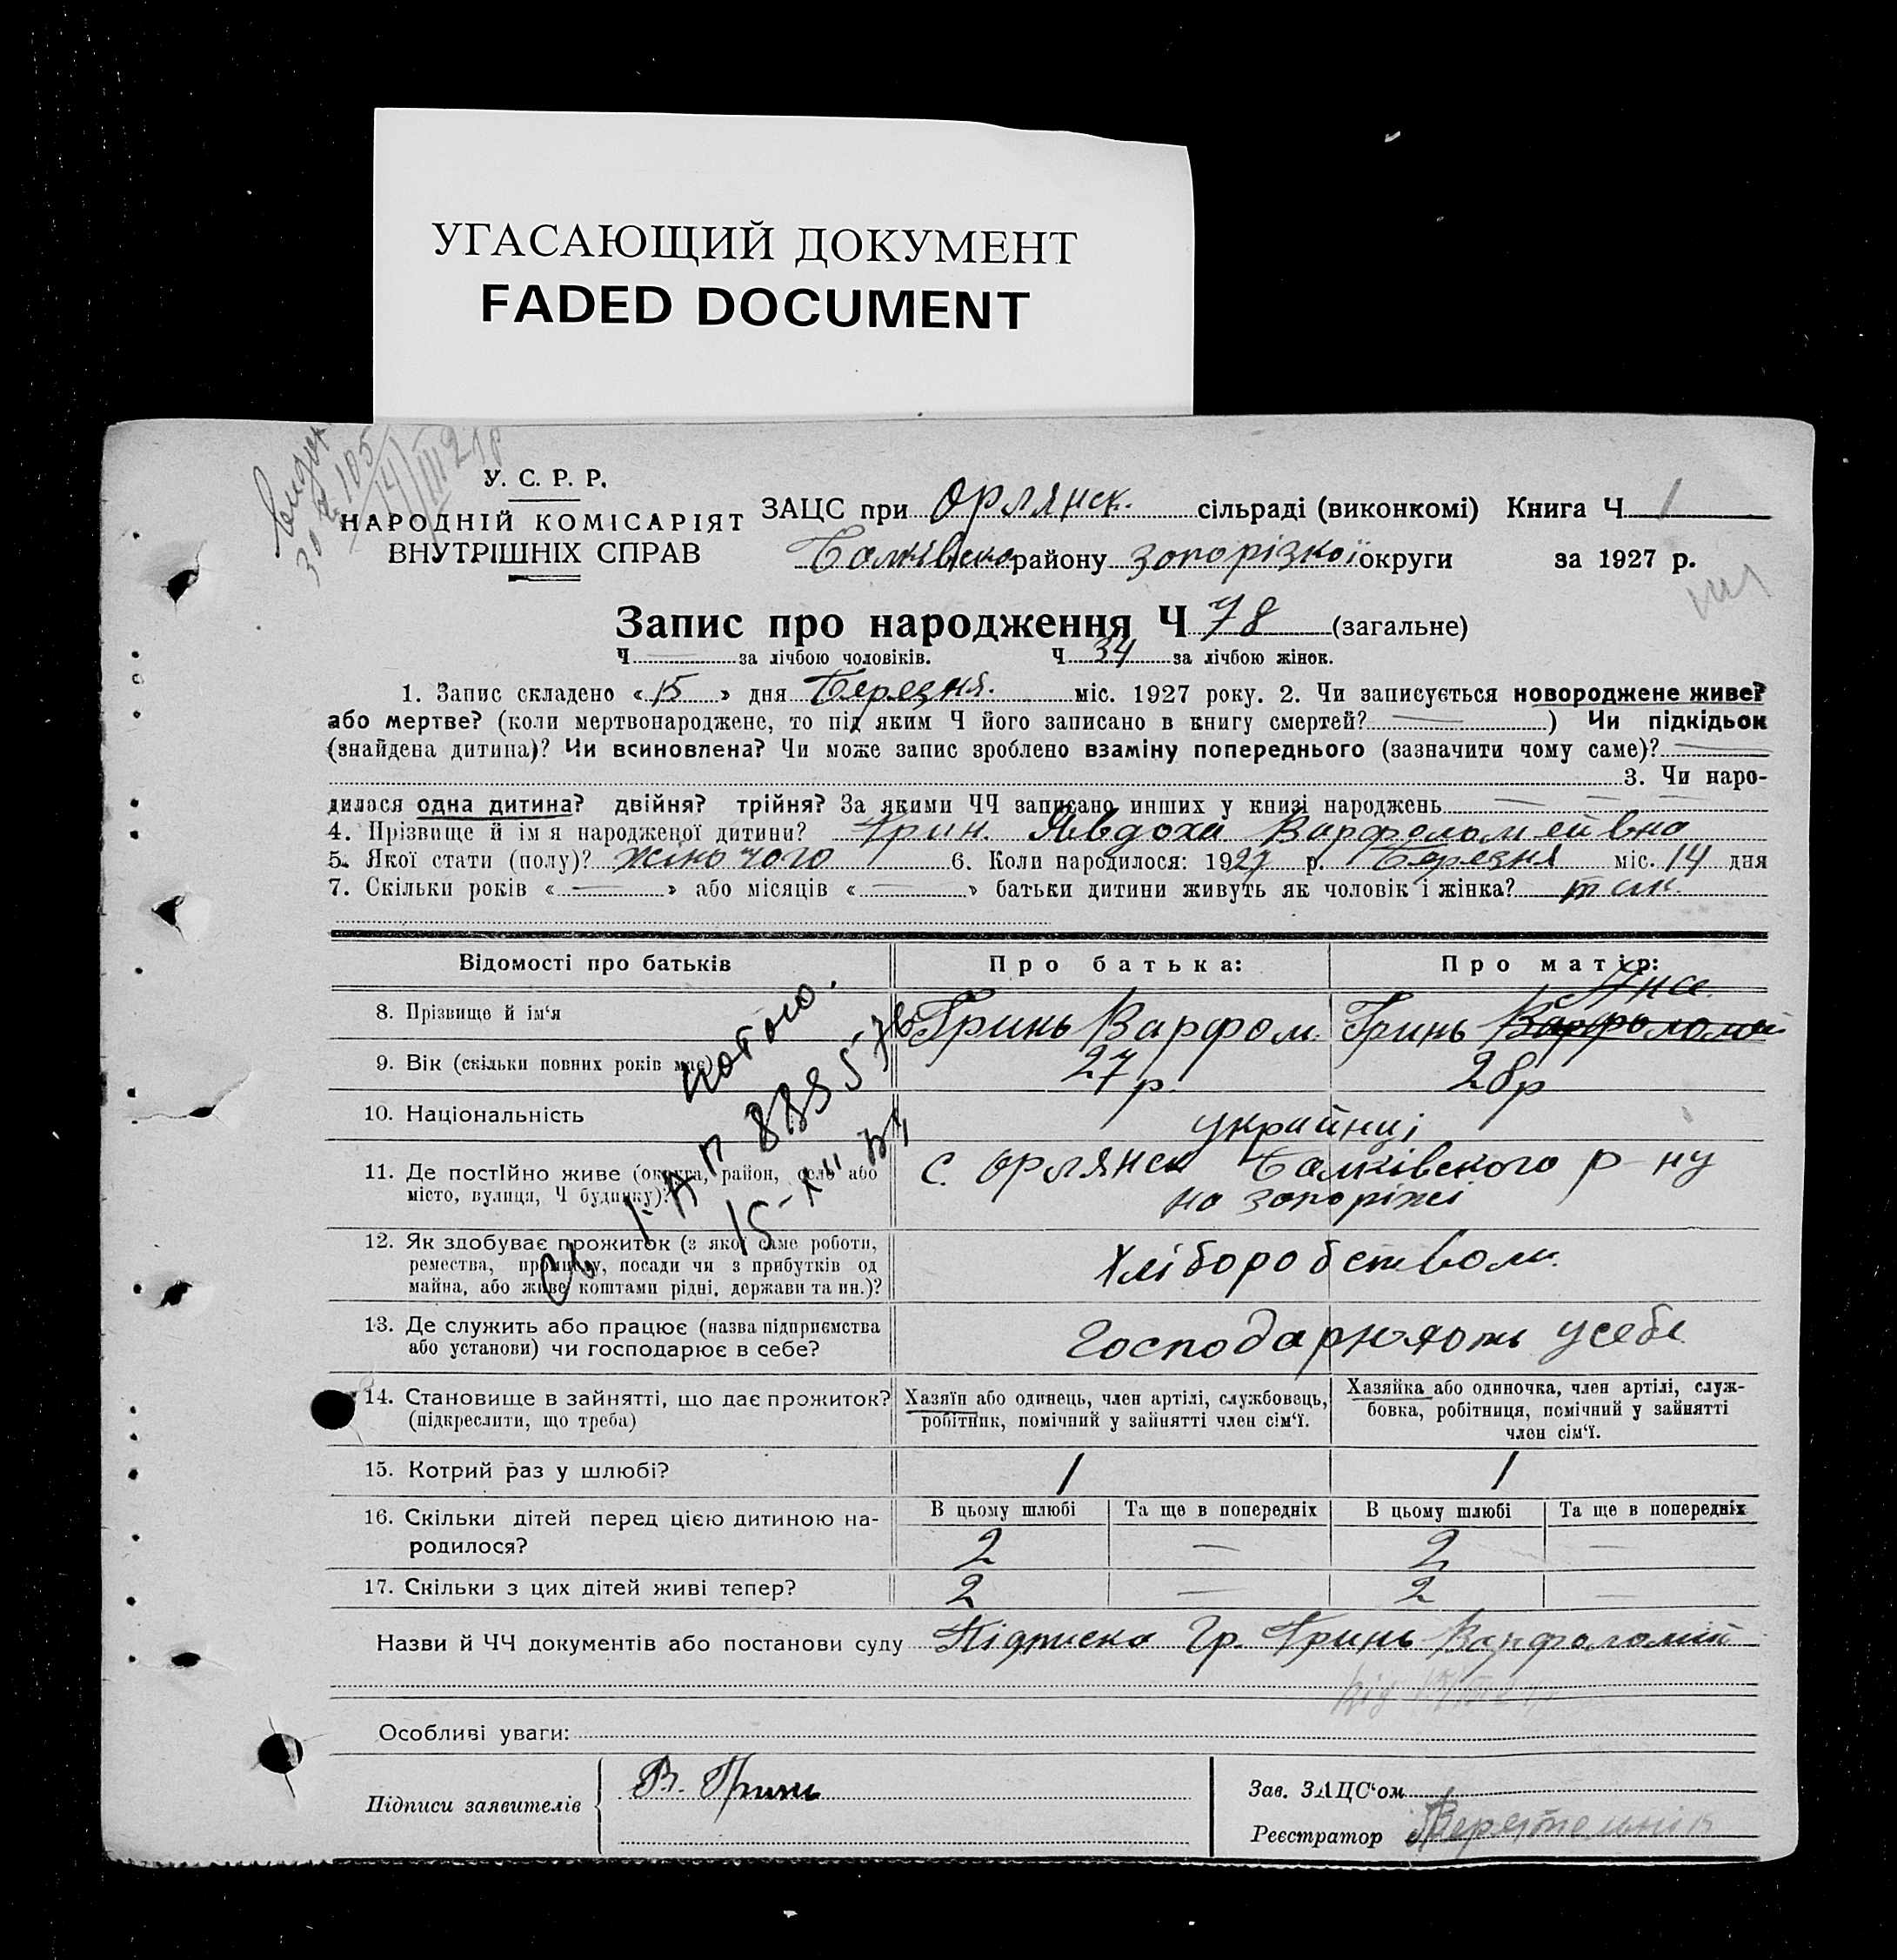 УГАСАЮЩИЙ ДОКУМЕНТ
FADED DOCUMENT
У. С. Р. Р.
НАРОДНІЙ КОМІСАРІЯТ
ВНУТРІШНІХ СПРАВ
ЗАЦС при Орлянск. сільраді (виконкомі) Книга Ч 1
району Запорізкої округи за 1927 р.
Запис про народження Ч 78 (загальне)
Ч — за лічбою чоловіків. Ч 34 за лічбою жінок.
1. Запис складено « 15 » дня Березня. міс. 1927 року. 2. Чи записується новороджене живе?
або мертве? (коли мертвонароджене, то під яким Ч його записано в книгу смертей? — ) Чи підкідьок
(знайдена дитина)? Чи всиновлена? Чи може запис зроблено взаміну попереднього (зазначити чому саме)? —
3. Чи наро-
дилося одна дитина? двійня? трійня? За якими ЧЧ записано инших у книзі народжень — — —
4. Прізвище й ім я народженої дитини? Грин. Явдоха Варфоломеївна
5. Якої стати (полу)? жіночого 6. Коли народилося: 1927 р. Березня міс. 14 дня
7. Скільки років « — » або місяців « — » батьки дитини живуть як чоловік і жінка? так
Відомості про батьків
Про батька:
Про матір:
8. Прізвище й ім'я
Гринь Варфом.
Гринь
9. Вік (скільки повних років має)
27 р.
28 р
10. Національність
українці
11. Де постійно живе (округа, район, село або
місто, вулиця, Ч будинку)?
с. Орлянск Балківского р-ну
на запоріжі
12. Як здобуває прожиток (з якої саме роботи,
ремества, промислу, посади чи з прибутків од
майна, або живе коштами рідні, держави та ин.)?
Хліборобством.
13. Де служить або працює (назва підприємства
або установи) чи господарює в себе?
Господарюють у себе
14. Становище в зайнятті, що дає прожиток?
(підкреслити, що треба)
Хазяїн або одинець, член артілі, службовець,
робітник, помічний у зайнятті член сім'ї.
Хазяйка або одиночка, член артілі, служ-
бовка, робітниця, помічний у зайнятті
член сім'ї.
15. Котрий раз у шлюбі?
1
1
16. Скільки дітей перед цією дитиною на-
родилося?
В цьому шлюбі
Та ще в попередніх
В цьому шлюбі
Та ще в попередніх
2 — 2 —
17. Скільки з цих дітей живі тепер?
2 — 2 —
Назви й ЧЧ документів або постанови суду Підписка гр. Гринь Варфоломій
Особливі уваги:
Підписи заявителів
В. Гринь
Зав. ЗАЦС'ом
Реєстратор